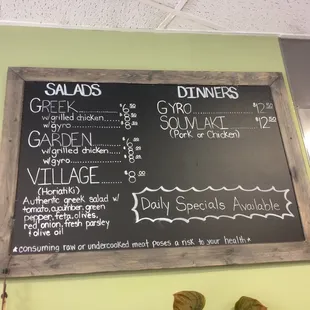 SALADS
GREEK
w/grilled chicken
w/gyro
GARDEN
w/grilled chicken
w/gyro
VILLAGE $8.00
(Horiatiki)
Authentic greek salad w/
tomato, cucumber, green
pepper, feta, olives,
red onion, fresh parsley
+ olive oil
DINNERS
GYRO $12.50
SOUVLAKI $12.50
(Pork or Chicken)
Daily Specials Available
*consuming raw or undercooked meat poses a risk to your health*